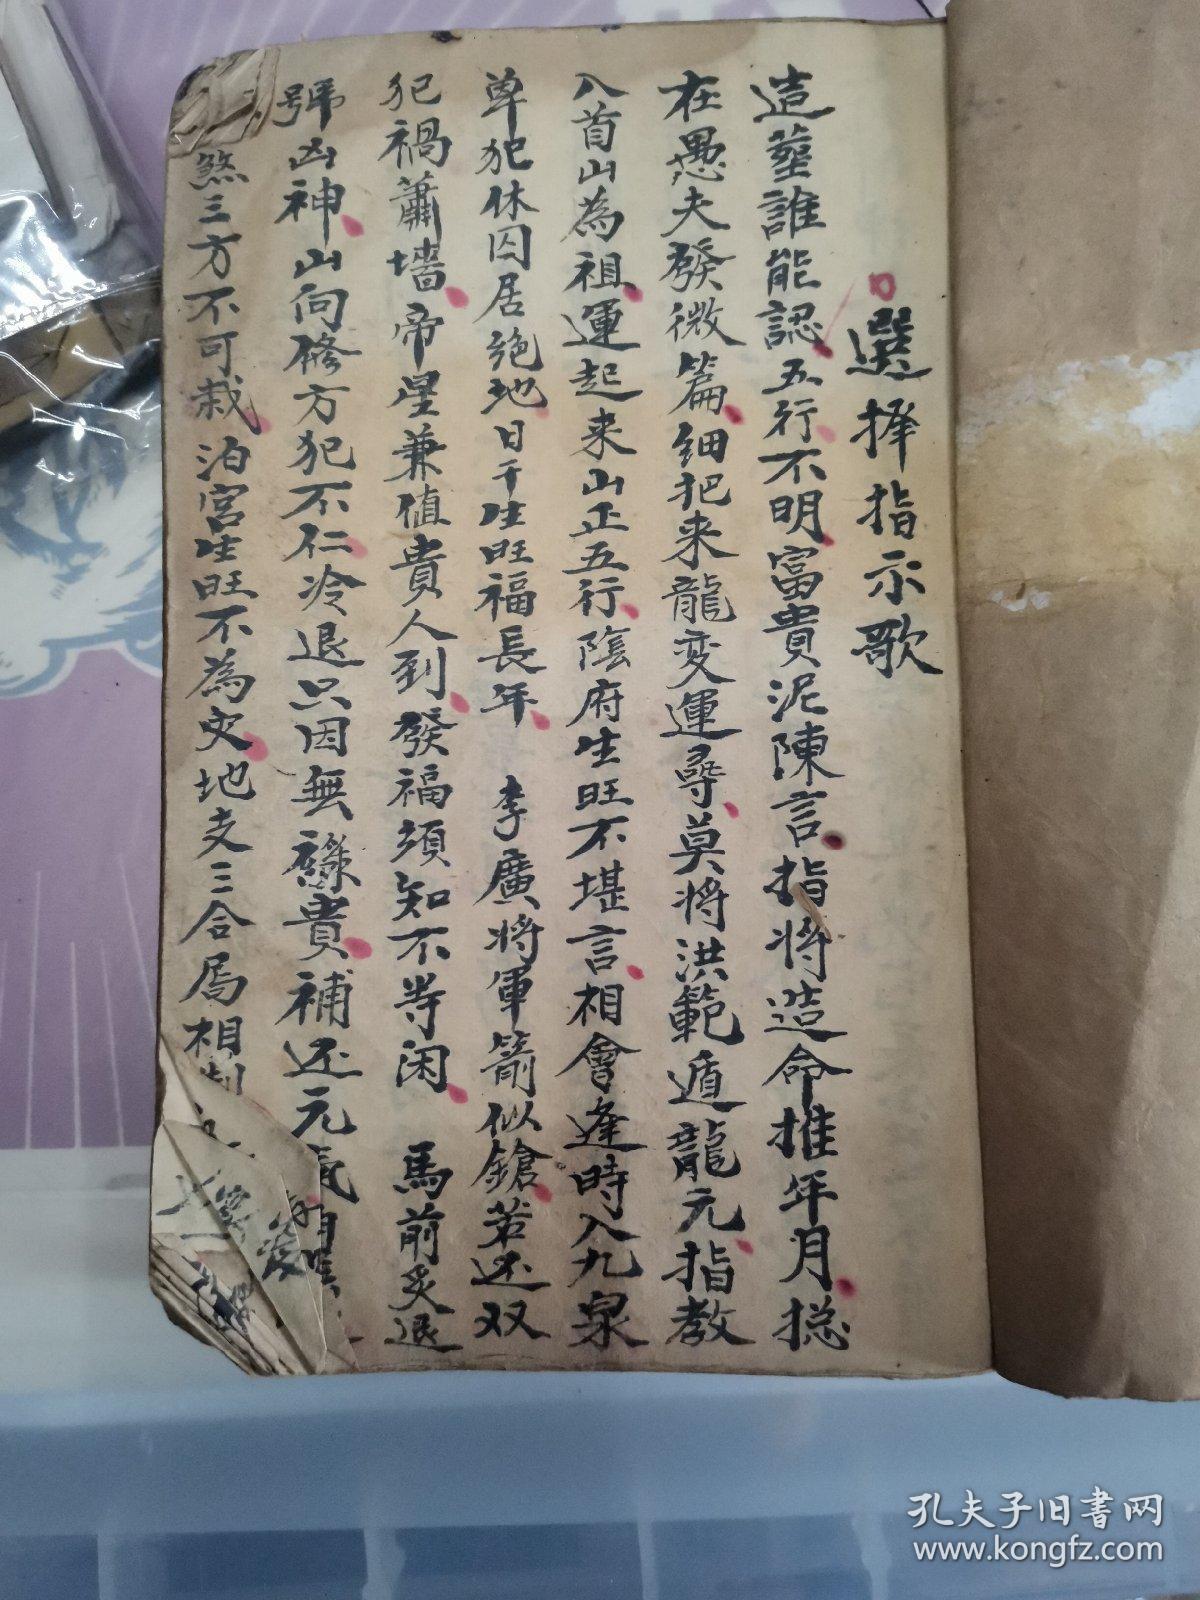 選擇指示歌
造塟誰能認五行不明富貴泥陳言指將造命推年月捴
在愚夫發微篇細把来龍变運尋莫將洪範遁龍元指教
八首山為祖運起来山正五行陰府生旺不堪言相會逢時入九泉
单犯休囚居绝地日干生旺福長年 李廣將軍箭似鎗若还双
犯禍蕭墻帝星兼值貴人到發福須知不等闲 馬前炙退
號凶神山向修方犯不仁冷退只因無祿貴補还元氣
煞三方不可栽泊宫生旺不為灾地支三合局相制
孔夫子旧書网
www.kongfz.com